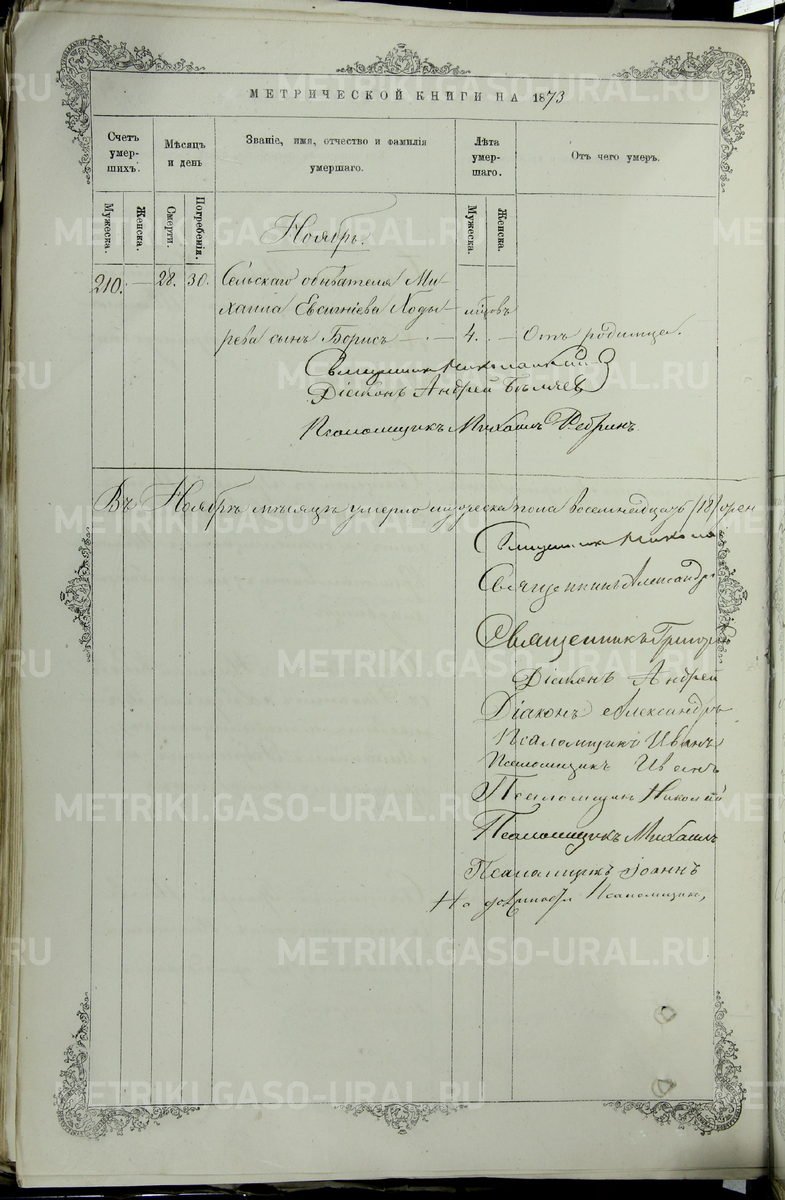 МЕТРИЧЕСКОЙ КНИГИ НА 1873
Счетъ умер-шихъ.
Мѣсяцъ и день
Званіе, имя, отчество и фамилія умершаго.
Лѣта умер-шаго.
Отъ чего умеръ.
Мужеска.
Женска.
Смерти.
Погребенія.
Мужеска.
Женска.
Ноябрь.
210. — 28. 30. Сельскаго обывателя Ми-
хаила Евсигніева Ходы- лѣтовъ
рева сынъ Борисъ — 4. — Отъ родимца.
Священник
Діаконъ Андрей Бѣляев
Псаломщикъ Михаилъ Ребринъ
Въ Ноябрѣ мѣсяцѣ умерло мужеска пола восемнадцать /18/
Священник Никола
Священникъ Александръ
Священникъ Григор
Діаконъ Андрей
Діаконъ Александръ
Псаломщикъ Иванъ
Псаломщикъ Иванъ
Псаломщик Николай
Псаломщикъ Михаилъ
Псаломщикъ Іоаннъ
Псаломщик
METRIKI.GASO-URAL.RU